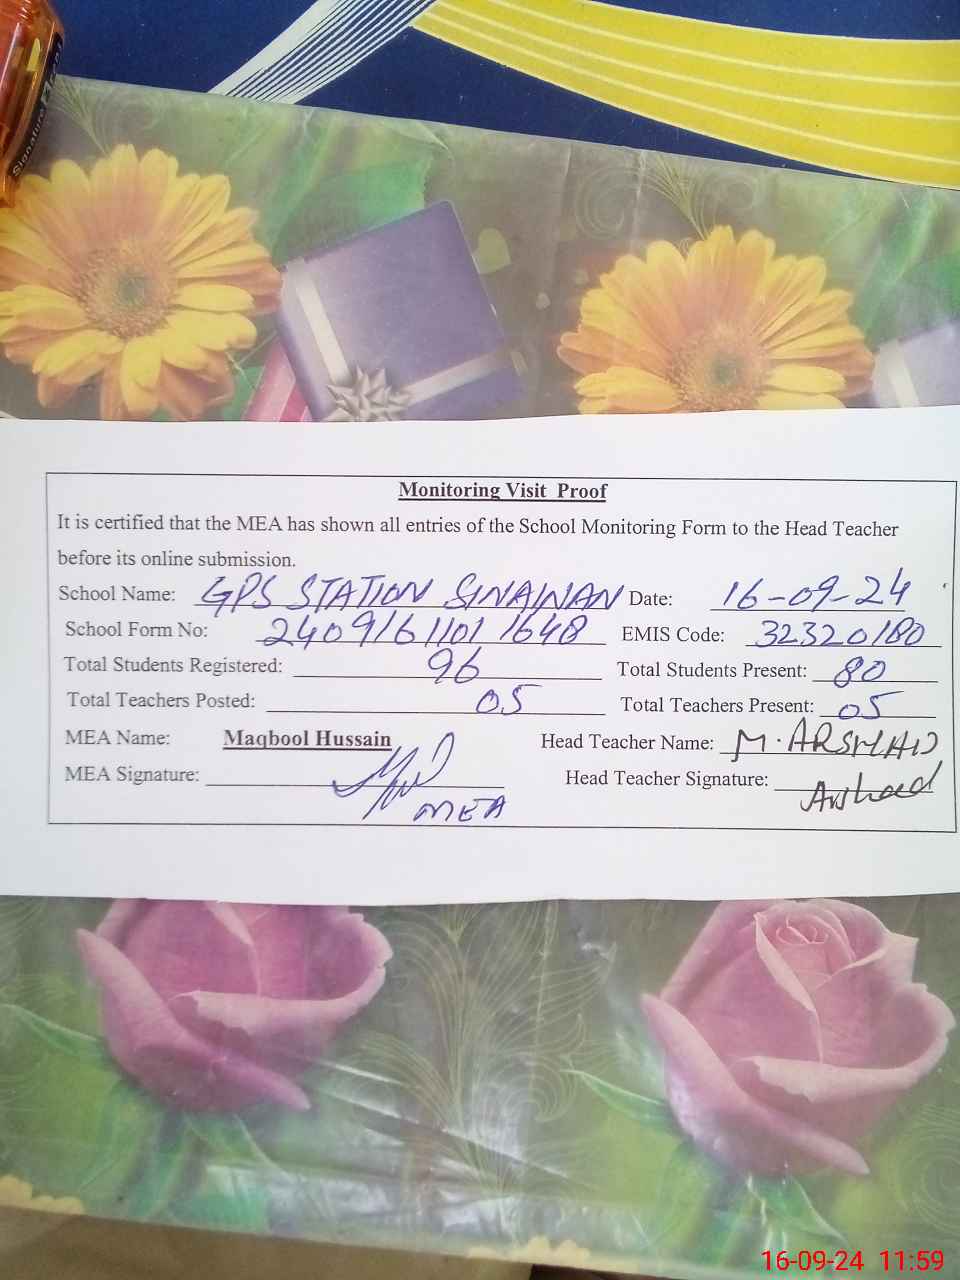 Signature
Monitoring Visit Proof
It is certified that the MEA has shown all entries of the School Monitoring Form to the Head Teacher
before its online submission.
School Name: GPS STATION SINAWAN Date: 16-09-24
School Form No: 2409161101 1648 EMIS Code: 32320180
Total Students Registered: 96 Total Students Present: 80
Total Teachers Posted: 05 Total Teachers Present: 05
MEA Name: Maqbool Hussain Head Teacher Name: M. ARSHAD
MEA Signature: Head Teacher Signature: Arshad
MEA
16-09-24 11:59